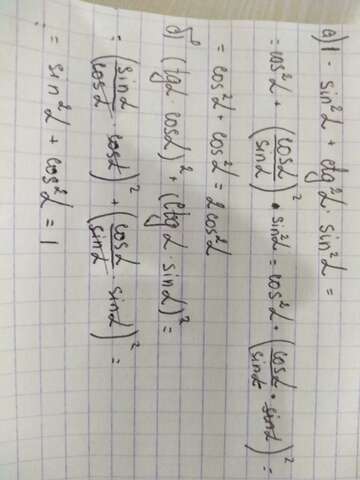 а) 1 - sin²α + ctg²α · sin²α =
= cos²α + (cosα/sinα)² · sin²α = cos²α + (cosα/sinα · sinα)² =
= cos²α + cos²α = 2cos²α
б) (tgα · cosα)² + (ctgα · sinα)² =
= (sinα/cosα · cosα)² + (cosα/sinα · sinα)² =
= sin²α + cos²α = 1